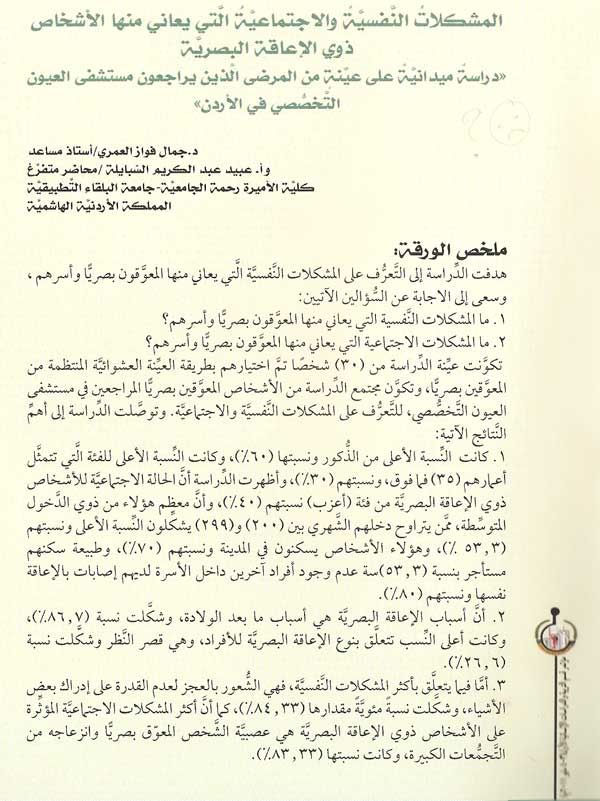 المشكلاتُ النَّفسيَّةُ والاجتماعيَّةُ الَّتي يعاني منها الأشخاص
ذوي الإعاقة البصريَّة
«دراسةٌ ميدانيَّةٌ على عيّنة من المرضى الَّذين يراجعون مستشفى العيون
التَّخصُّصي في الأردن»
د.جمال فواز العمري/أستاذ مساعد
وأ. عبيد عبد الكريم السّبايلة /محاضر متفرّغ
كليَّة الأميرة رحمة الجامعيَّة- جامعة البلقاء التَّطبيقيَّة
المملكة الأردنيَّة الهاشميَّة
ملخص الورقة:
هدفت الدِّراسة إلى التَّعرُّف على المشكلات النَّفسيَّة الَّتي يعاني منها المعوَّقون بصريًّا وأسرهم ،
وسعى إلى الاجابة عن السُّؤالين الآتيين:
١. ما المشكلات النَّفسية التي يعاني منها المعوَّقون بصريًّا وأسرهم؟
٢. ما المشكلات الاجتماعية التي يعاني منها المعوَّقون بصريًّا وأسرهم؟
تكوَّنت عيِّنة الدِّراسة من (٣٠) شخصًا تمَّ اختيارهم بطريقة العيِّنة العشوائيَّة المنتظمة من
المعوَّقين بصريًّا، وتكوَّن مجتمع الدِّراسة من الأشخاص المعوَّقين بصريًّا المراجعين في مستشفى
العيون التَّخصُّصي، للتَّعرُّف على المشكلات النَّفسيَّة والاجتماعيَّة. وتوصَّلت الدِّراسة إلى أهمِّ
النَّتائج الآتية:
١. كانت النِّسبة الأعلى من الذُّكور ونسبتها (٦٠٪)، وكانت النِّسبة الأعلى للفئة الَّتي تتمثَّل
أعمارهم (٣٥) فما فوق، ونسبتهم (٣٠٪)، وأظهرت الدِّراسة أنَّ الحالة الاجتماعيَّة للأشخاص
ذوي الإعاقة البصريَّة من فئة (أعزب) نسبتهم (٤٠٪)، وأنَّ معظم هؤلاء من ذوي الدَّخول
المتوسِّطة، ممَّن يتراوح دخلهم الشَّهري بين (٢٠٠) و(٢٩٩) يشكِّلون النِّسبة الأعلى ونسبتهم
(٥٣,٣ ٪)، وهؤلاء الأشخاص يسكنون في المدينة ونسبتهم (٧٠٪)، وطبيعة سكنهم
مستأجر بنسبة (٥٣,٣)سة عدم وجود أفراد آخرين داخل الأسرة لديهم إصابات بالإعاقة
نفسها ونسبتهم (٨٠٪).
٢. أنَّ أسباب الإعاقة البصريَّة هي أسباب ما بعد الولادة، وشكَّلت نسبة (٨٦,٧٪)،
وكانت أعلى النِّسب تتعلَّق بنوع الإعاقة البصريَّة للأفراد، وهي قصر النَّظر وشكَّلت نسبة
(٢٦,٦٪).
٣. أمَّا فيما يتعلَّق بأكثر المشكلات النَّفسيَّة، فهي الشُّعور بالعجز لعدم القدرة على إدراك بعض
الأشياء، وشكَّلت نسبةً مئويَّةً مقدارها (٨٤,٣٣٪)، كما أنَّ أكثر المشكلات الاجتماعيَّة المؤثِّرة
على الأشخاص ذوي الإعاقة البصريَّة هي عصبيَّة الشَّخص المعوّق بصريًّا وانزعاجه من
التَّجمُّعات الكبيرة، وكانت نسبتها (٨٣,٣٣٪).